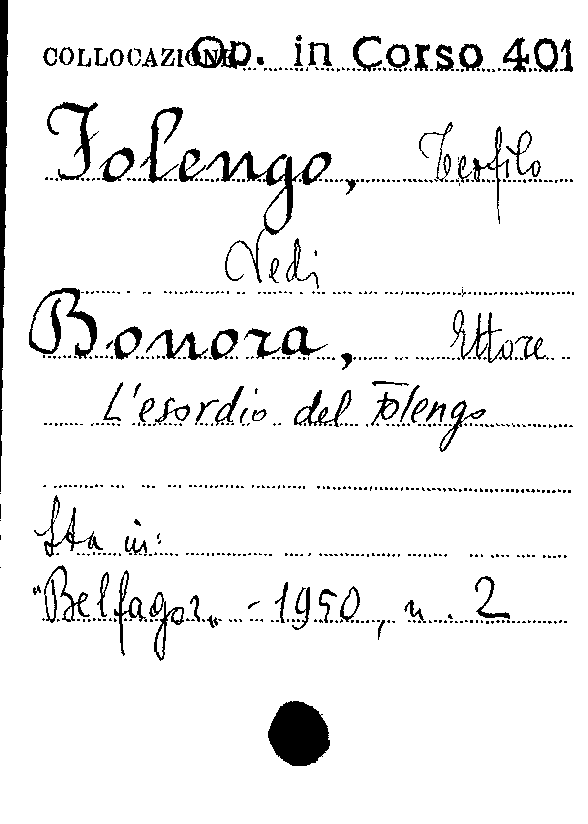 COLLOCAZIONE Op. in Corso 401
Folengo, Teofilo
Vedi
Bonora, Ettore
L'esordio del Folengo
Sta in:
"Belfagor" - 1950, n. 2